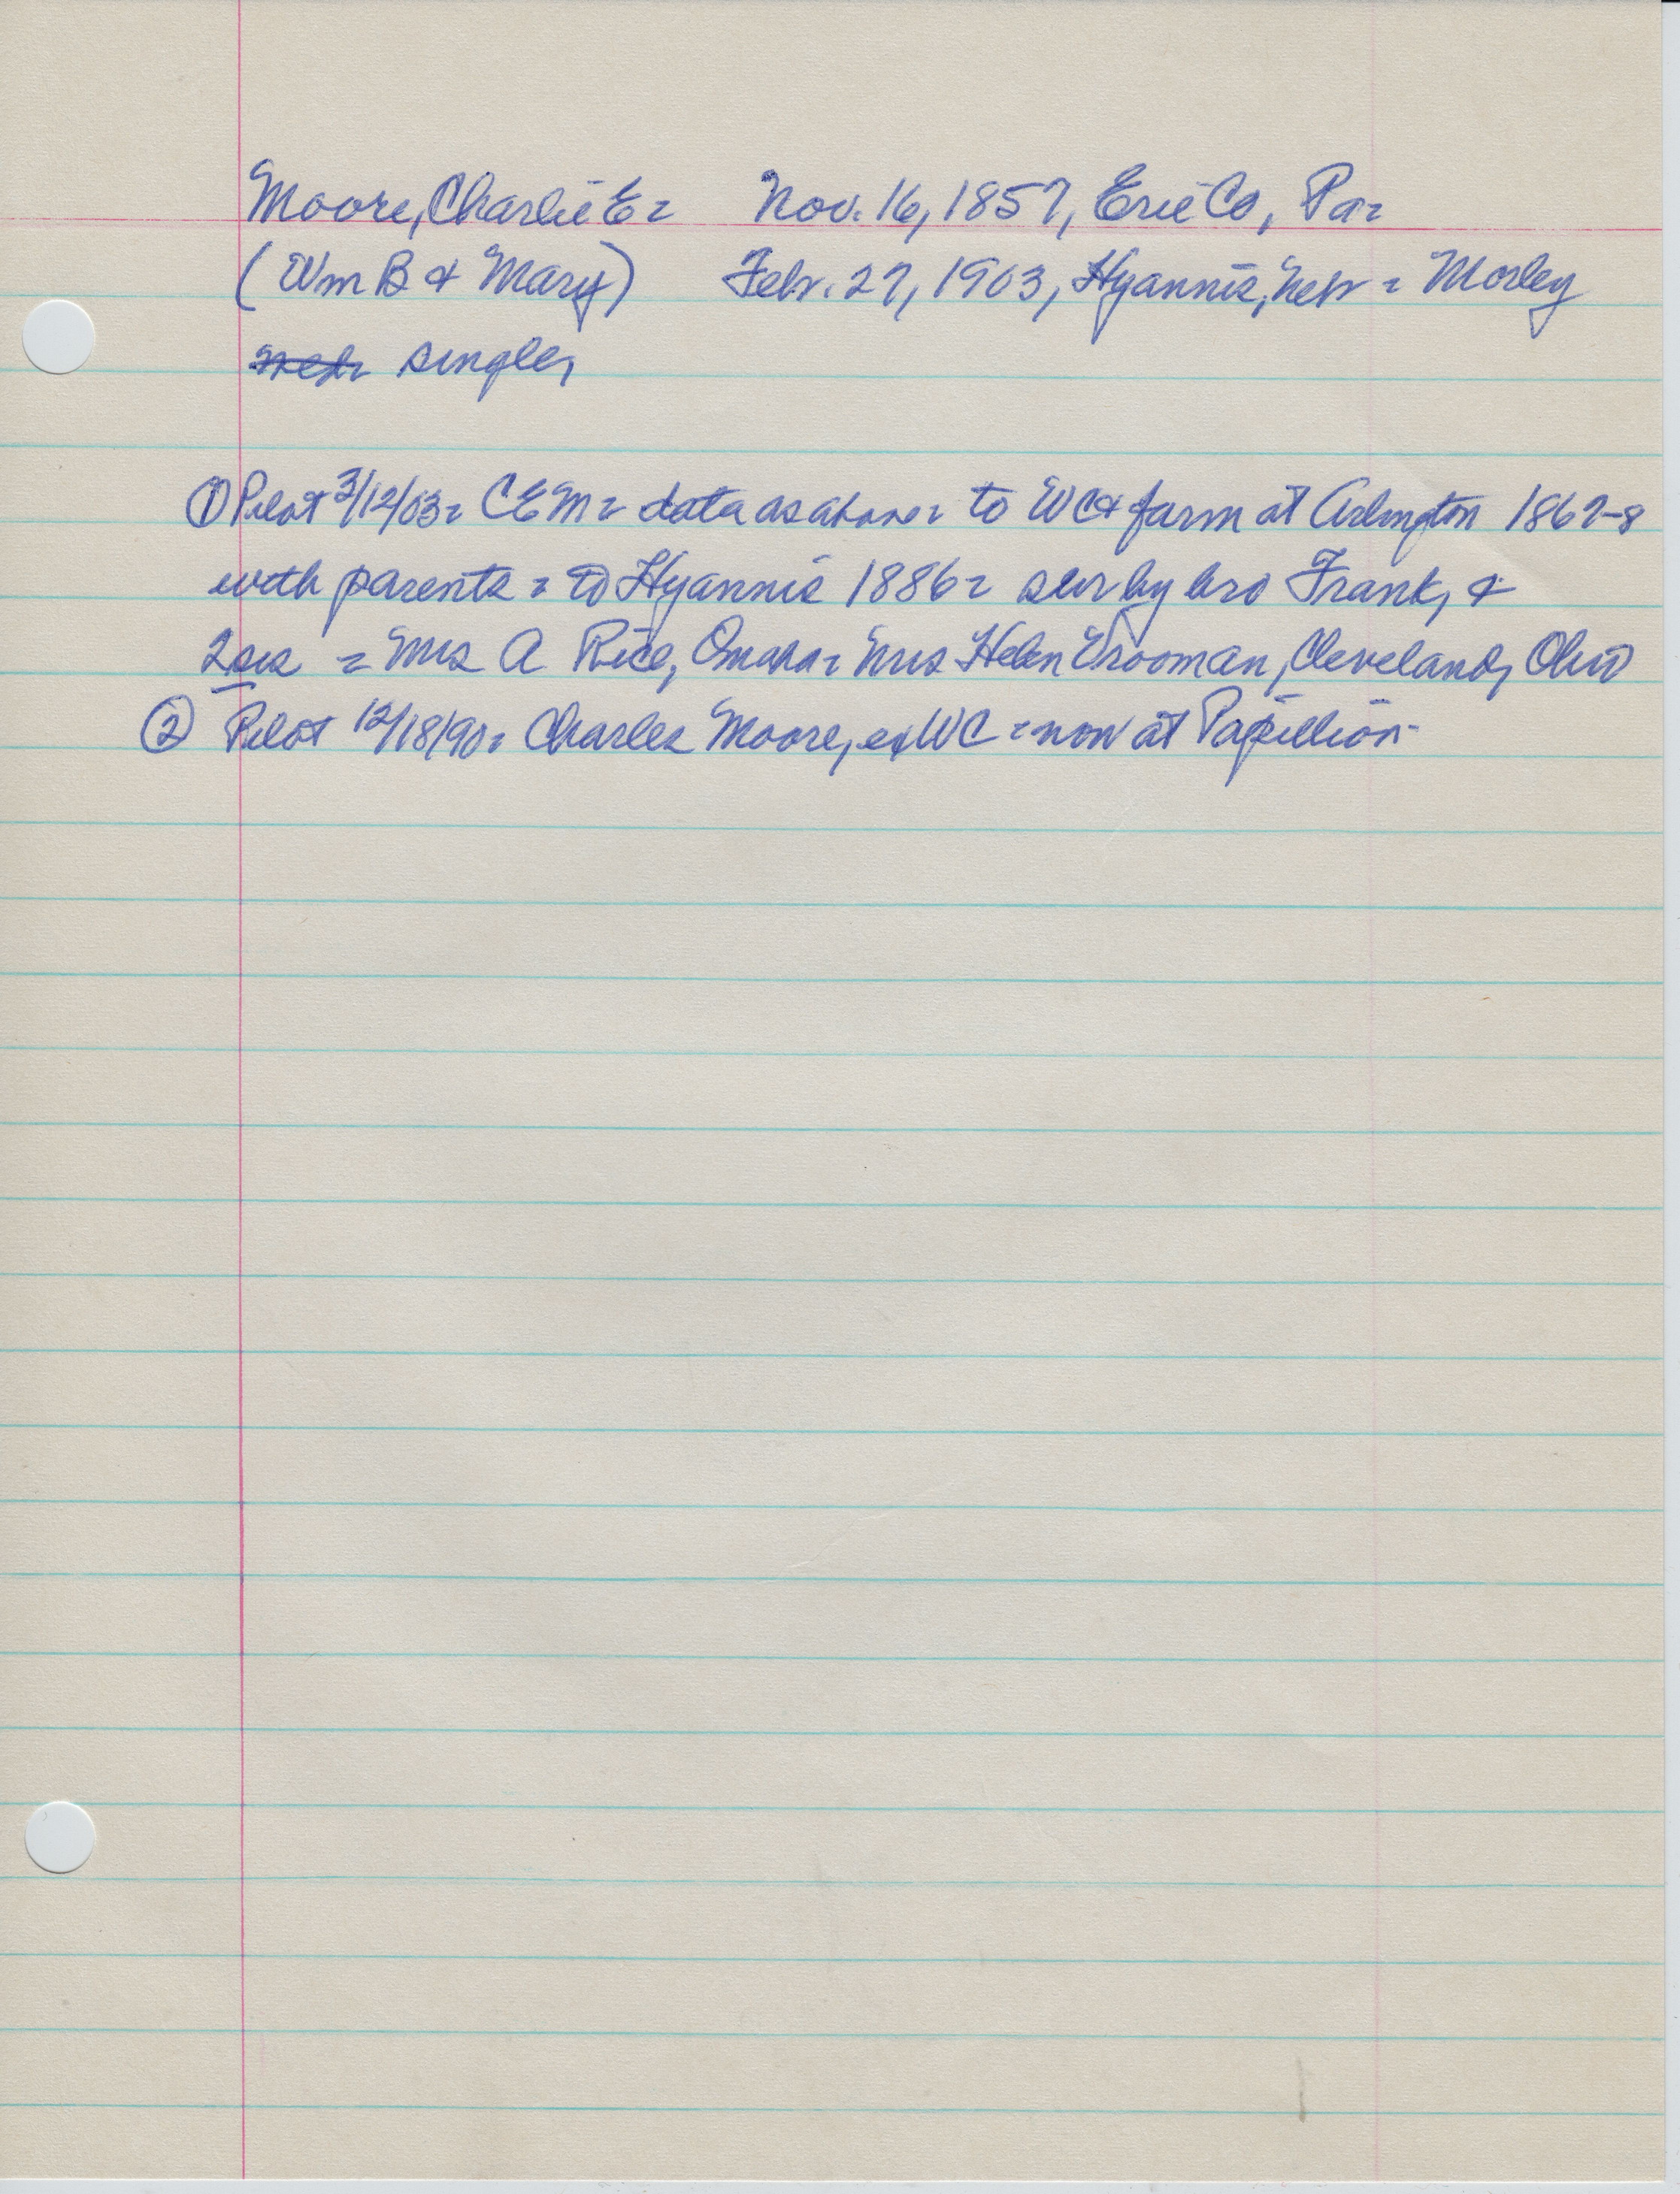 Moore, Charlie E = Nov. 16, 1857, Erie Co, Pa =
(Wm B & Mary) Febr. 27, 1903, Hyannis, Nebr = Morley
single,
① Pilot 3/12/03 = CEM = data as above = to WC & farm at Arlington 1867-8
with parents = to Hyannis 1886 = sur by bro Frank, &
2 sis = Mrs A Rice, Omaha = Mrs Helen Vrooman, Cleveland, Ohio
② Pilot 12/18/90 = Charles Moore, ex WC = now at Papillion